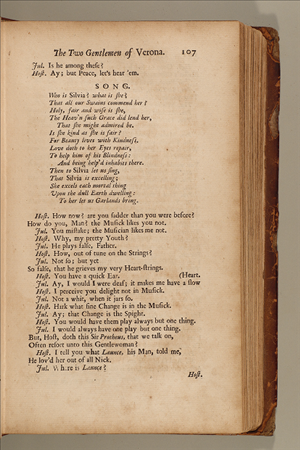 The Two Gentlemen of Verona. 107
Jul. Is he among these?
Host. Ay; but Peace, let's hear 'em.
SONG.
Who is Silvia? what is she?
That all our Swains commend her?
Holy, fair and wise is she,
The Heav'n such Grace did lend her,
That she might admired be.
Is she kind as she is fair?
For Beauty lives with Kindness,
Love doth to her Eyes repair,
To help him of his Blindness:
And being help'd inhabits there.
Then to Silvia let us sing,
That Silvia is excelling;
She excels each mortal thing
Upon the dull Earth dwelling:
To her let us Garlands bring.
Host. How now? are you sadder than you were before?
How do you, Man? the Musick likes you not.
Jul. You mistake; the Musician likes me not.
Host. Why, my pretty Youth?
Jul. He plays false, Father.
Host. How, out of tune on the Strings?
Jul. Not so; but yet
So false, that he grieves my very Heart-strings.
Host. You have a quick Ear. (Heart.
Jul. Ay, I would I were deaf; it makes me have a slow
Host. I perceive you delight not in Musick.
Jul. Not a whit, when it jars so.
Host. Hark what fine Change is in the Musick.
Jul. Ay; that Change is the Spight.
Host. You would have them play always but one thing.
Jul. I would always have one play but one thing.
But, Host, doth this Sir Protheus, that we talk on,
Often resort unto this Gentlewoman?
Host. I tell you what Launce, his Man, told me,
He lov'd her out of all Nick.
Jul. Where is Launce?
Host,